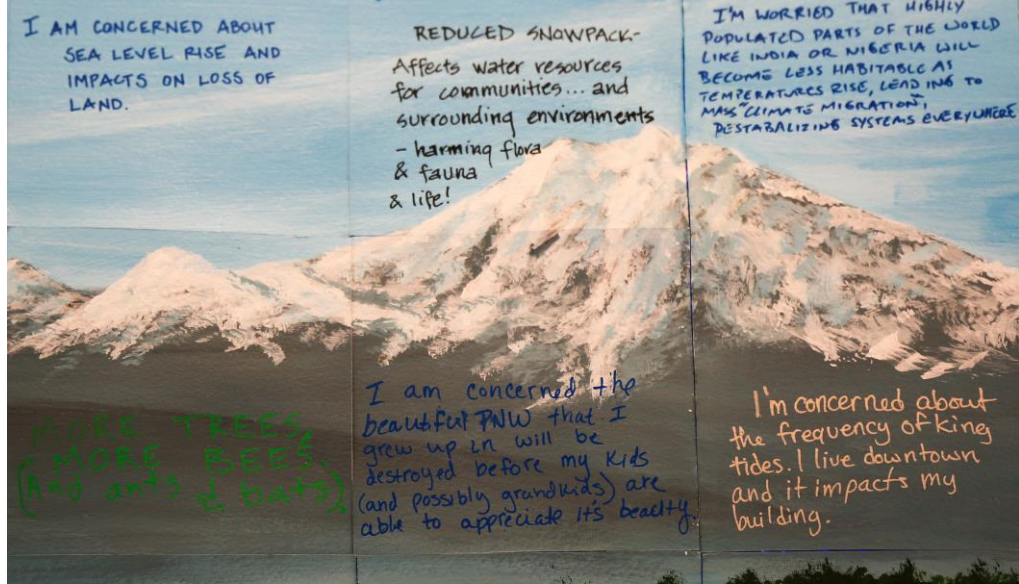 I AM CONCERNED ABOUT
SEA LEVEL RISE AND
IMPACTS ON LOSS OF
LAND.
REDUCED SNOWPACK-
Affects water resources
for communities... and
surrounding environments
- harming flora
& fauna
& life!
I'M WORRIED THAT HIGHLY
POPULATED PARTS OF THE WORLD
LIKE INDIA OR NIGERIA WILL
BECOME LESS HABITABLE AS
TEMPERATURES RISE, LEADING TO
MASS "CLIMATE MIGRATION",
DESTABALIZING SYSTEMS EVERYWHERE
MORE TREES,
MORE BEES,
(And ants & bats)
I am concerned the
beautiful PNW that I
grew up in will be
destroyed before my kids
(and possibly grandkids) are
able to appreciate it's beauty.
I'm concerned about
the frequency of king
tides. I live downtown
and it impacts my
building.